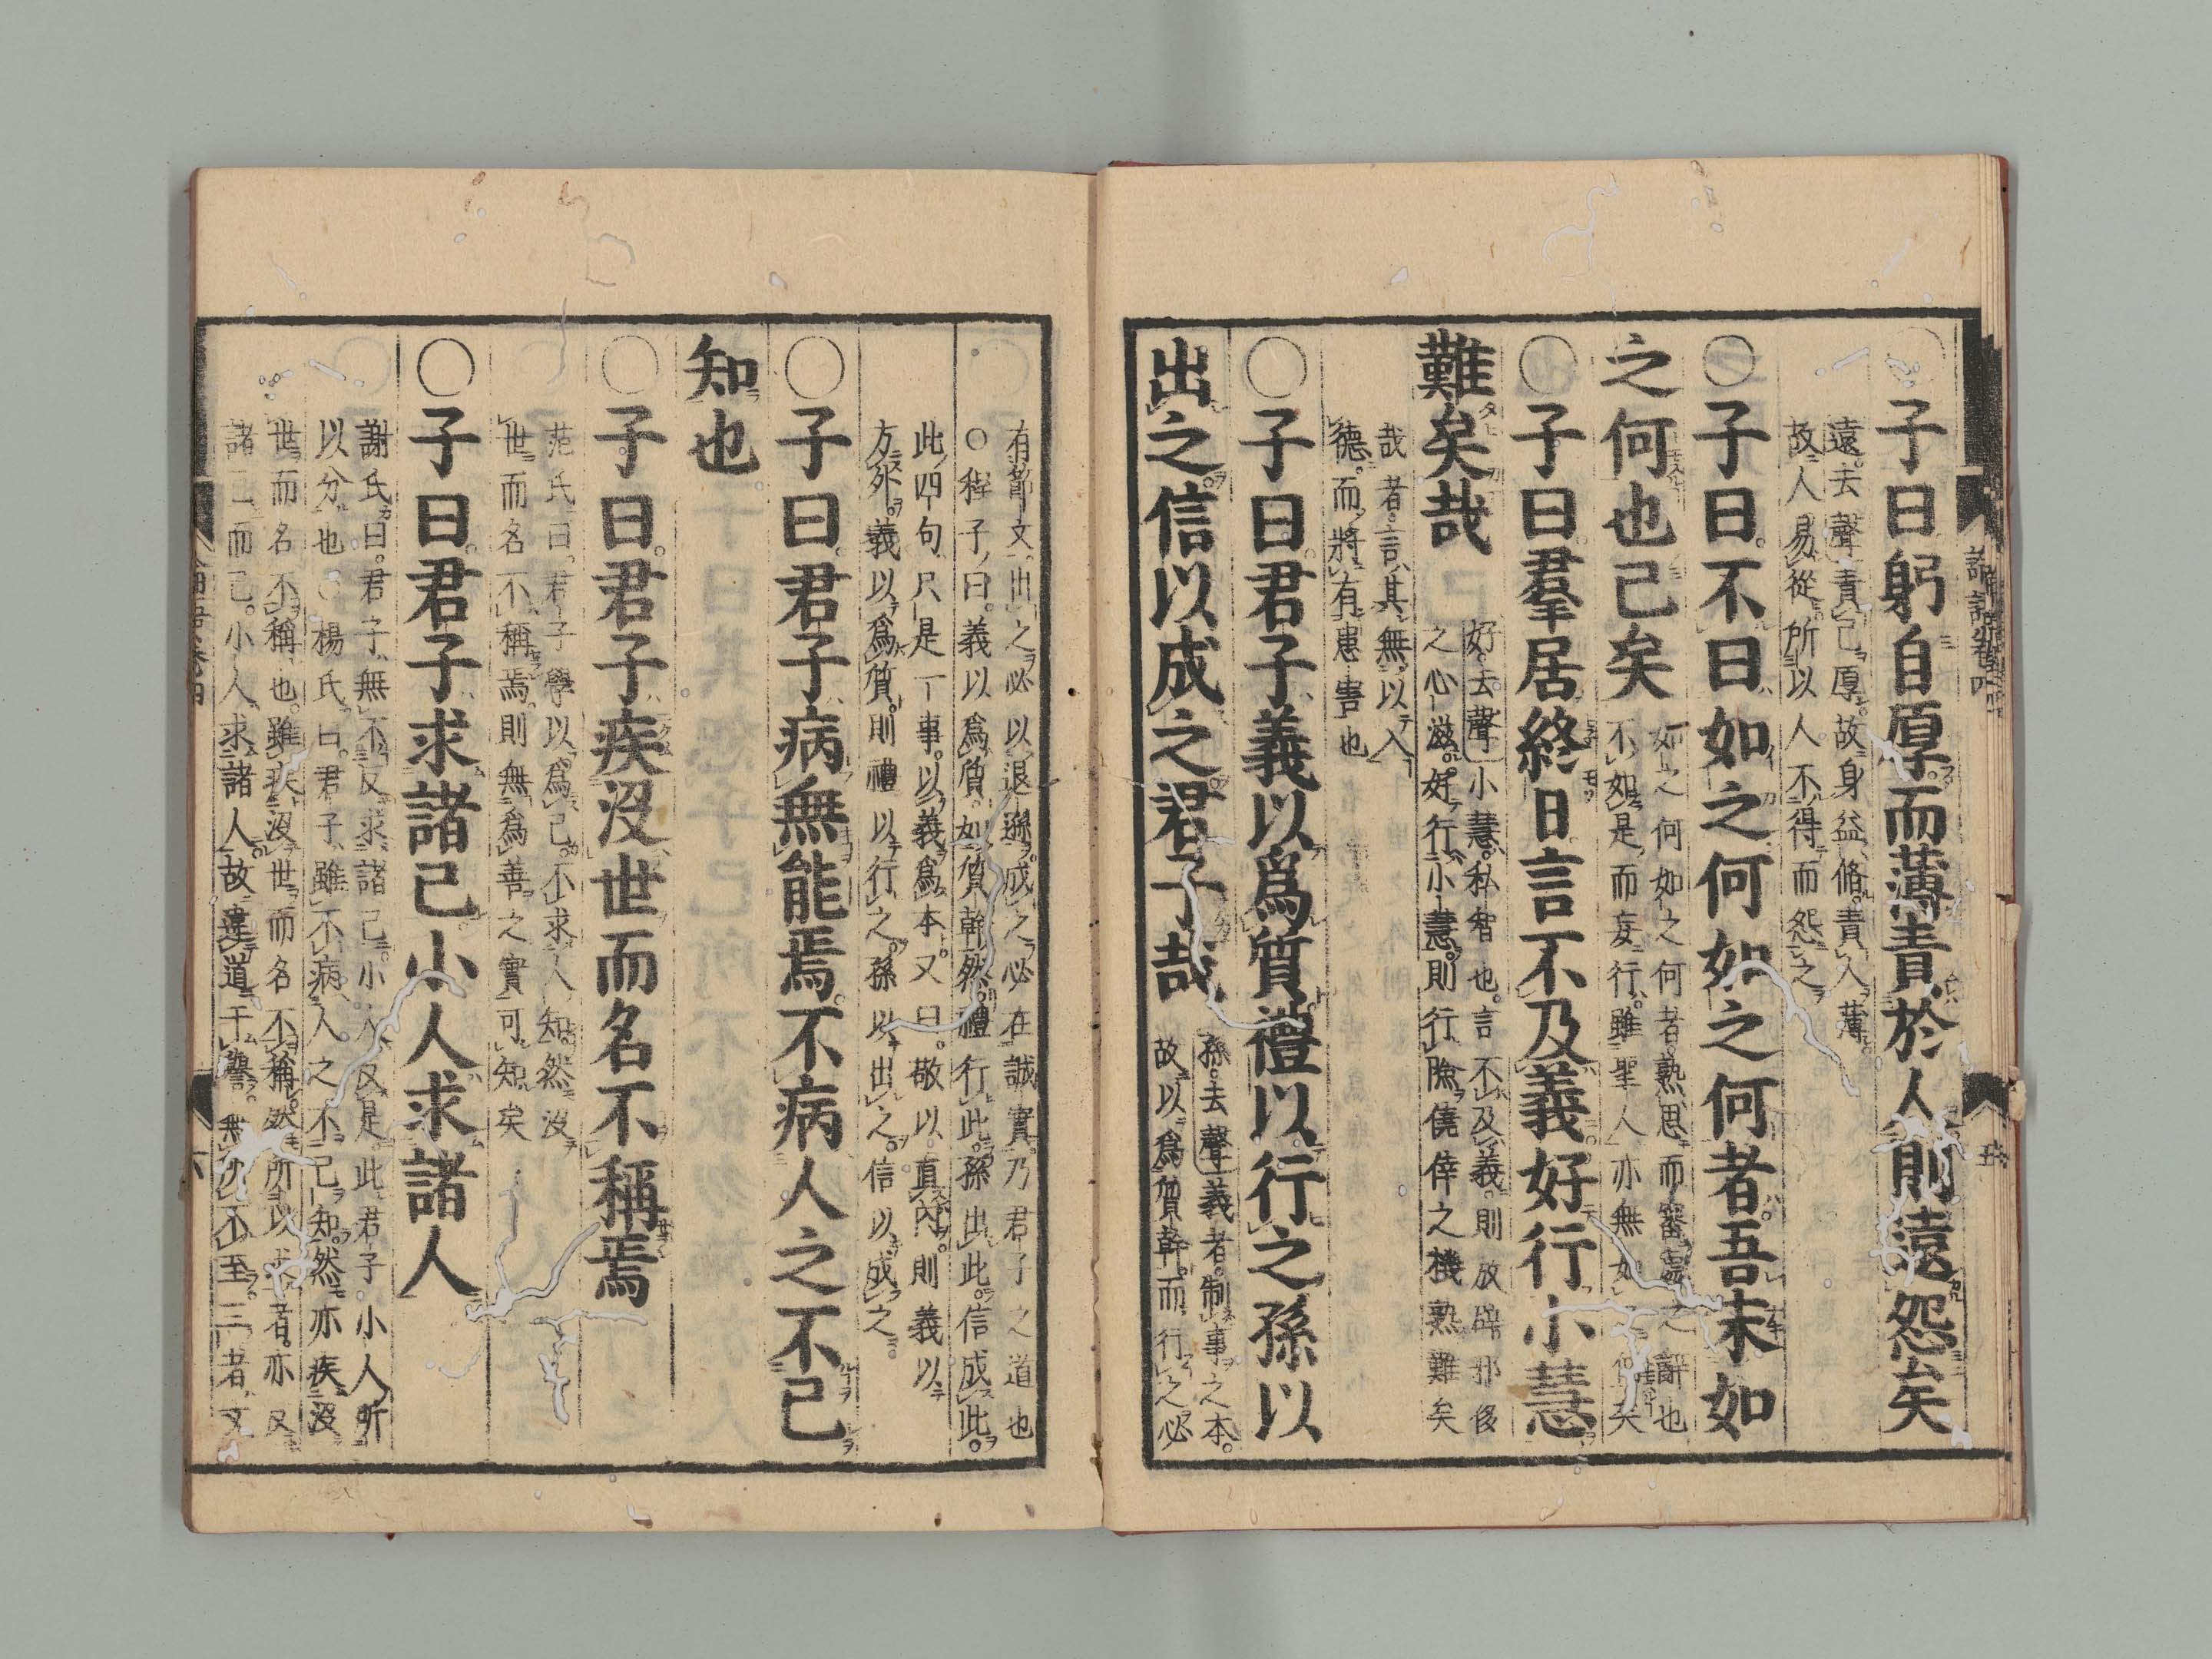 ○子曰躬自厚而薄責於人則遠怨矣
遠去聲責己厚故身益脩責人薄
故人易從所以人不得而怨之
○子曰不曰如之何如之何者吾末如
之何也已矣
如之何如之何者熟思而審處之辭也
不如是而妄行雖聖人亦無如之何矣
○子曰羣居終日言不及義好行小慧
難矣哉
好去聲小慧私智也言不及義則放辟邪侈
之心滋好行小慧則行險僥倖之機熟難矣
哉者言其無以入
德而將有患害也
○子曰君子義以爲質禮以行之孫以
出之信以成之君子哉
孫去聲義者制事之本
故以爲質幹而行之必
有節文出之必以退遜成之必在誠實乃君子之道也
○程子曰義以爲質如質幹然禮行此孫出此信成此
此四句只是一事以義爲本又曰敬以直內則義以
方外義以爲質則禮以行之孫以出之信以成之
○子曰君子病無能焉不病人之不己
知也
○子曰君子疾沒世而名不稱焉
范氏曰君子學以爲己不求人知然沒
世而名不稱焉則無爲善之實可知矣
○子曰君子求諸己小人求諸人
謝氏曰君子無不反求諸己小人反是此君子小人所
以分也○楊氏曰君子雖不病人之不己知然亦疾沒
世而名不稱也雖疾沒世而名不稱然所以求者亦反
諸己而已小人求諸人故違道干譽無所不至三者文
論語卷四
五